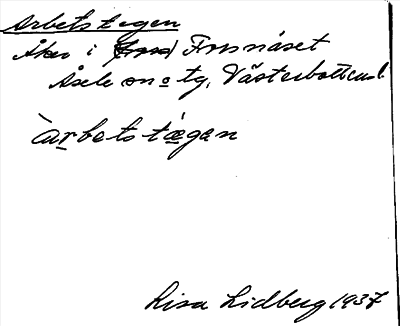 Arbetstegen
Åker i Frosnäset
Åsele sn o tg, Västerbottens l.
àrbetstǽgan
Lisa Lidberg 1937